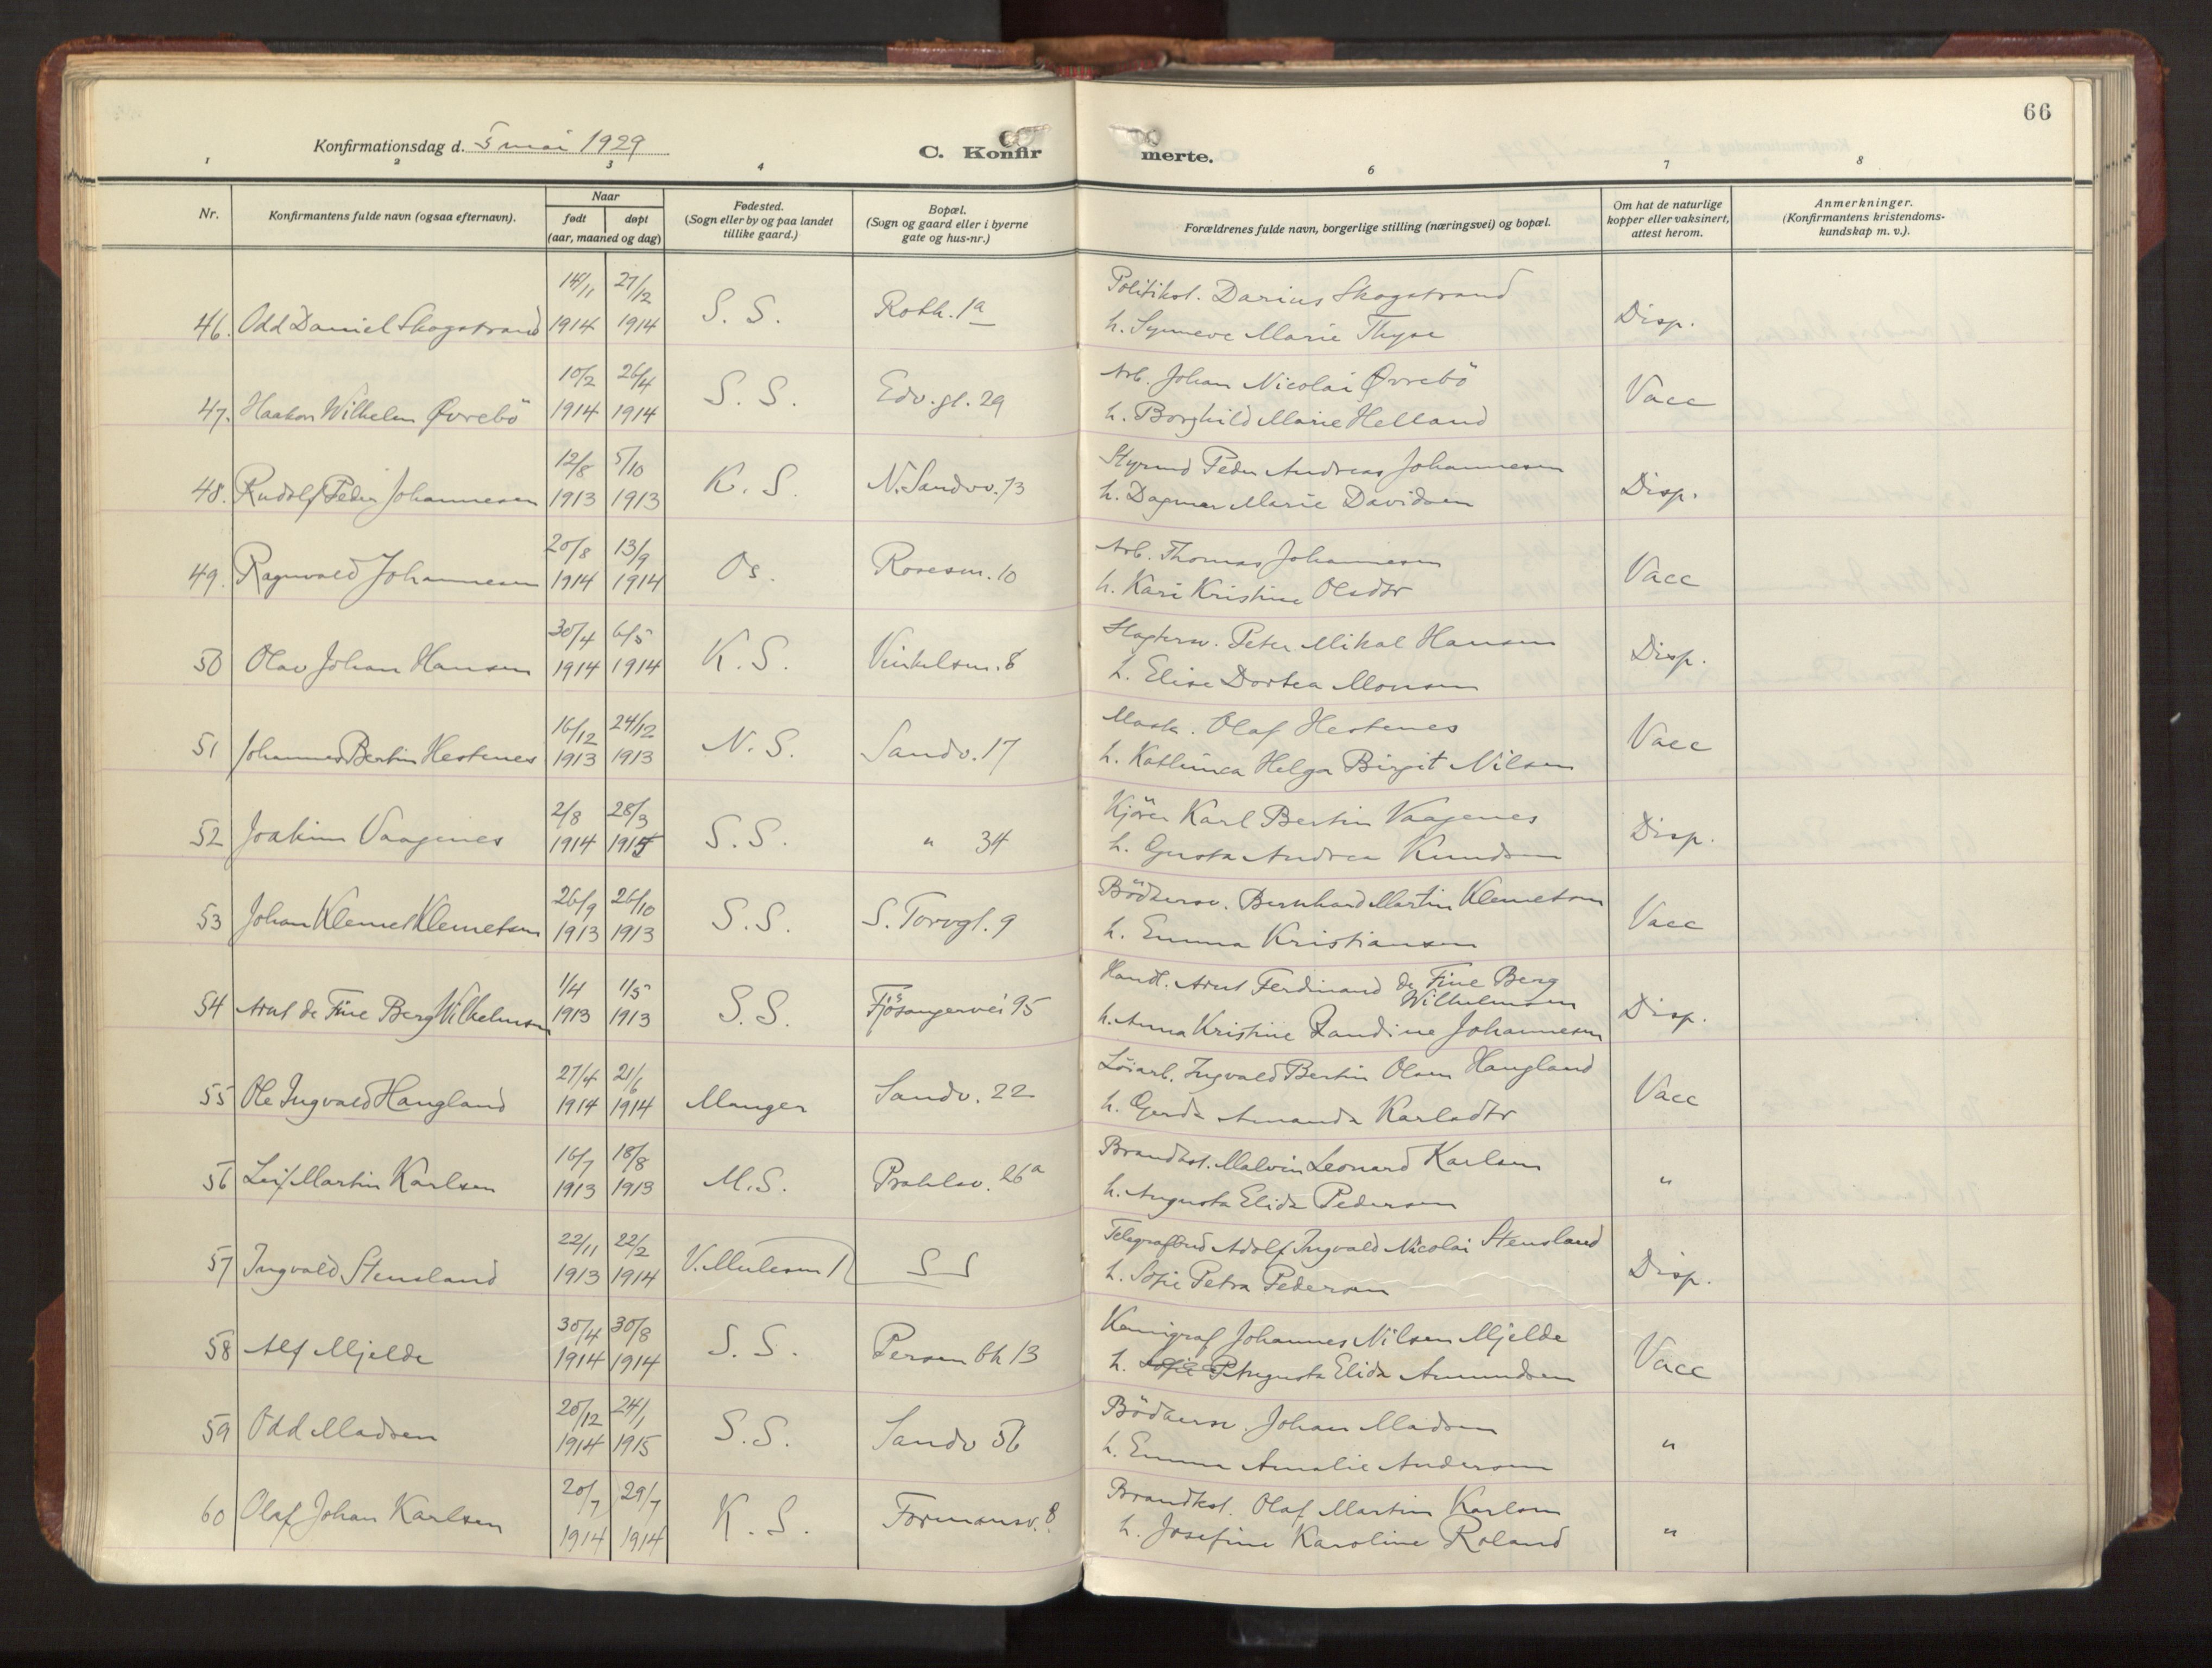 66
Konfirmationsdag d. 5 mai 1929
C. Konfir
merte.
1 2 3 4 6 7 8
Nr.
Konfirmantens fulde navn (ogsaa efternavn).
Naar
født døpt
(aar, maaned og dag)
Fødested.
(Sogn eller by og paa landet
tillike gaard.)
Bopæl.
(Sogn og gaard eller i byerne
gate og hus-nr.)
Forældrenes fulde navn, borgerlige stilling (næringsvei) og bopæl.
Om hat de naturlige
kopper eller vaksinert,
attest herom.
Anmerkninger.
(Konfirmantens kristendoms-
kundskap m. v.).
14/11 27/12 Politikst. Darius Skogstrand
46. Odd Daniel Skogstrand 1914 1914 S. S. Roth. 1a h. Synneve Marie Disp.
10/2 26/4 Arb. Johan Nicolai Øvrebö
47. Haakon Wilhelm Øvrebö 1914 1914 S. S. Edv. gt. 29 h. Borghild Marie Helland Vacc
12/8 5/10 Styrmd Peder Andreas Johannesen
48. Rudolf Peder Johannesen 1913 1913 K. S. N. Sandvv. 73 h. Dagmar Marie Davidsen Disp.
20/8 13/9 Arb. Thomas Johannesen
49. Ragnvald Johannesen 1914 1914 Os. Rosesm. 10 h. Kari Kristine Olsdtr Vacc
30/4 6/5 Slagtersv. Peter Mikal Hansen
50 Olav Johan Hansen 1914 1914 K. S. Vinkelsm. 8 h. Elise Dortea Monsen Disp.
16/12 24/12 Mask. Olaf Hestenes
51 Johannes Bertin Hestenes 1913 1913 N. S. Sandv. 17 h. Kathinca Helga Birgit Nilsen Vacc
2/8 28/3 Kjörer Karl Bertin Vaagenes
52 Joakim Vaagenes 1914 1915 S. S. " 34 h. Gusta Andrea Knudsen Disp.
26/9 26/10 Bödkersv. Bernhard Martin Klemetsen
53 Johan Klemet Klemetsen 1913 1913 S. S. S. Torvgt. 9 h. Emma Kristiansen Vacc
1/4 1/5 Handl. Arnt Ferdinand de Fine Berg
Wilhelmsen
54 Arnt de Fine Berg Wilhelmsen 1913 1913 S. S. Fjösangervei 95 h. Anna Kristine Randine Johannesen Disp.
27/4 21/6 Löiarb. Ingvald Bertin Olsen Haugland
55 Ole Ingvald Haugland 1914 1914 Manger Sandv. 22 h. Gerda Amanda Karlsdtr Vacc
16/7 18/8 Brandkst. Malvin Leonard Karlsen
56 Leif Martin Karlsen 1913 1913 M. S. Prahlsv. 26a h. Augusta Elida Pedersen "
22/11 22/2 Telegrafbud Adolf Ingvald Nicolai Stensland
57 Ingvald Stensland 1913 1914 V. Mulesm S S h. Sofie Petra Pedersen Disp.
30/4 30/8 Kemigraf Johannes Nilsen Mjelde
58 Alf Mjelde 1914 1914 S. S. Persen bk 13 h. Sofie P Augusta Elida Amundsen Vacc
20/12 24/1 Bödkersv. Johan Madsen
59 Odd Madsen 1914 1915 S. S. Sandv 56 h. Emma Amalie Andersen "
20/7 29/7 Brandkst. Olaf Martin Karlsen
60 Olaf Johan Karlsen 1914 1914 K. S. Formansv. 8. h. Josefine Karoline Roland "